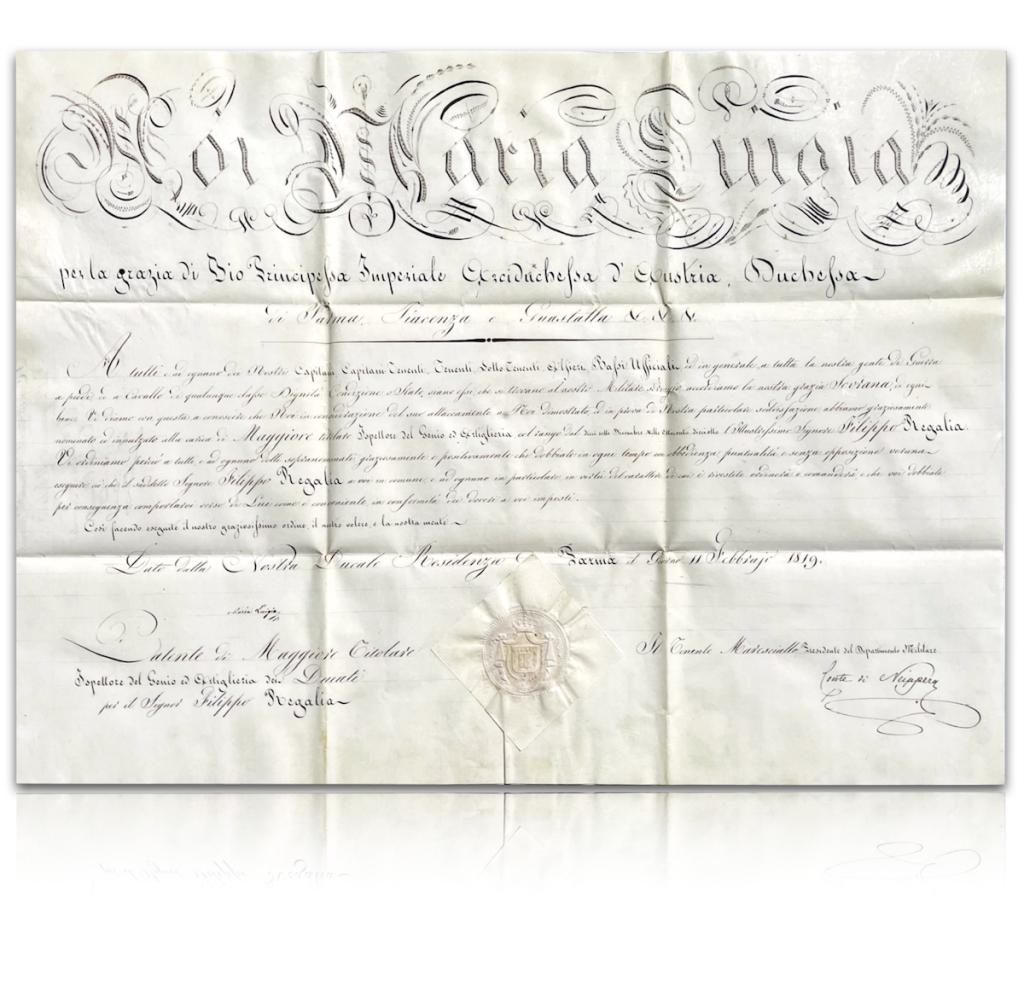 Noi Maria Luigia
per la grazia di Dio Principessa Imperiale Arciduchessa d'Austria, Duchessa
di Parma, Piacenza e Guastalla &. &. &.
A tutti e ad ognuno dei Nostri Capitani Capitani Tenenti, Tenenti Sotto Tenenti, Alfieri Bassi Uffiziali, ed in generale a tutta la nostra gente di Guerra
a piede e a Cavallo di qualunque classe Dignità Condizione o Stato, siano essi, che si trovano al nostro Militare servizio accordiamo la nostra grazia Sovrana, ed ogni
bene. Vi diamo con questa a conoscere che Noi in considerazione del suo attaccamento a Noi dimostrato, ed in prova di Nostra particolare sodisfazione abbiamo graziosamente
nominato ed innalzato alla carica di Maggiore titolare Ispettore del Genio ed Artiglieria col rango dal dieci sette Novembre mille ottocento dieciotto l'Illustrissimo Signore Filippo Regalia.
Vi ordiniamo perciò a tutti e ad ognuno delli sopranominati graziosamente e positivamente che dobbiate in ogni tempo in obbedienza, puntualità e senza opposizione veruna
eseguire ciò che il suddetto Signore Filippo Regalia a voi in comune, e ad ognuno in particolare in virtù del carattere di cui è rivestito ordinerà e comanderà, e che voi dobbiate
per conseguenza comportarvi verso di Lui come è conveniente, in conformità dei doveri a voi imposti.
Così facendo eseguite il nostro graziosissimo ordine, il nostro volere, e la nostra mente.
Dato dalla Nostra Ducale Residenza di Parma il Giorno 11 Febbrajo 1819.
Maria Luigia
Patente di Maggiore Titolare
Ispettore del Genio ed Artiglieria dei Ducati
per il Signor Filippo Regalia
Il Tenente Maresciallo Presidente del Dipartimento Militare
Conte di Neipperg